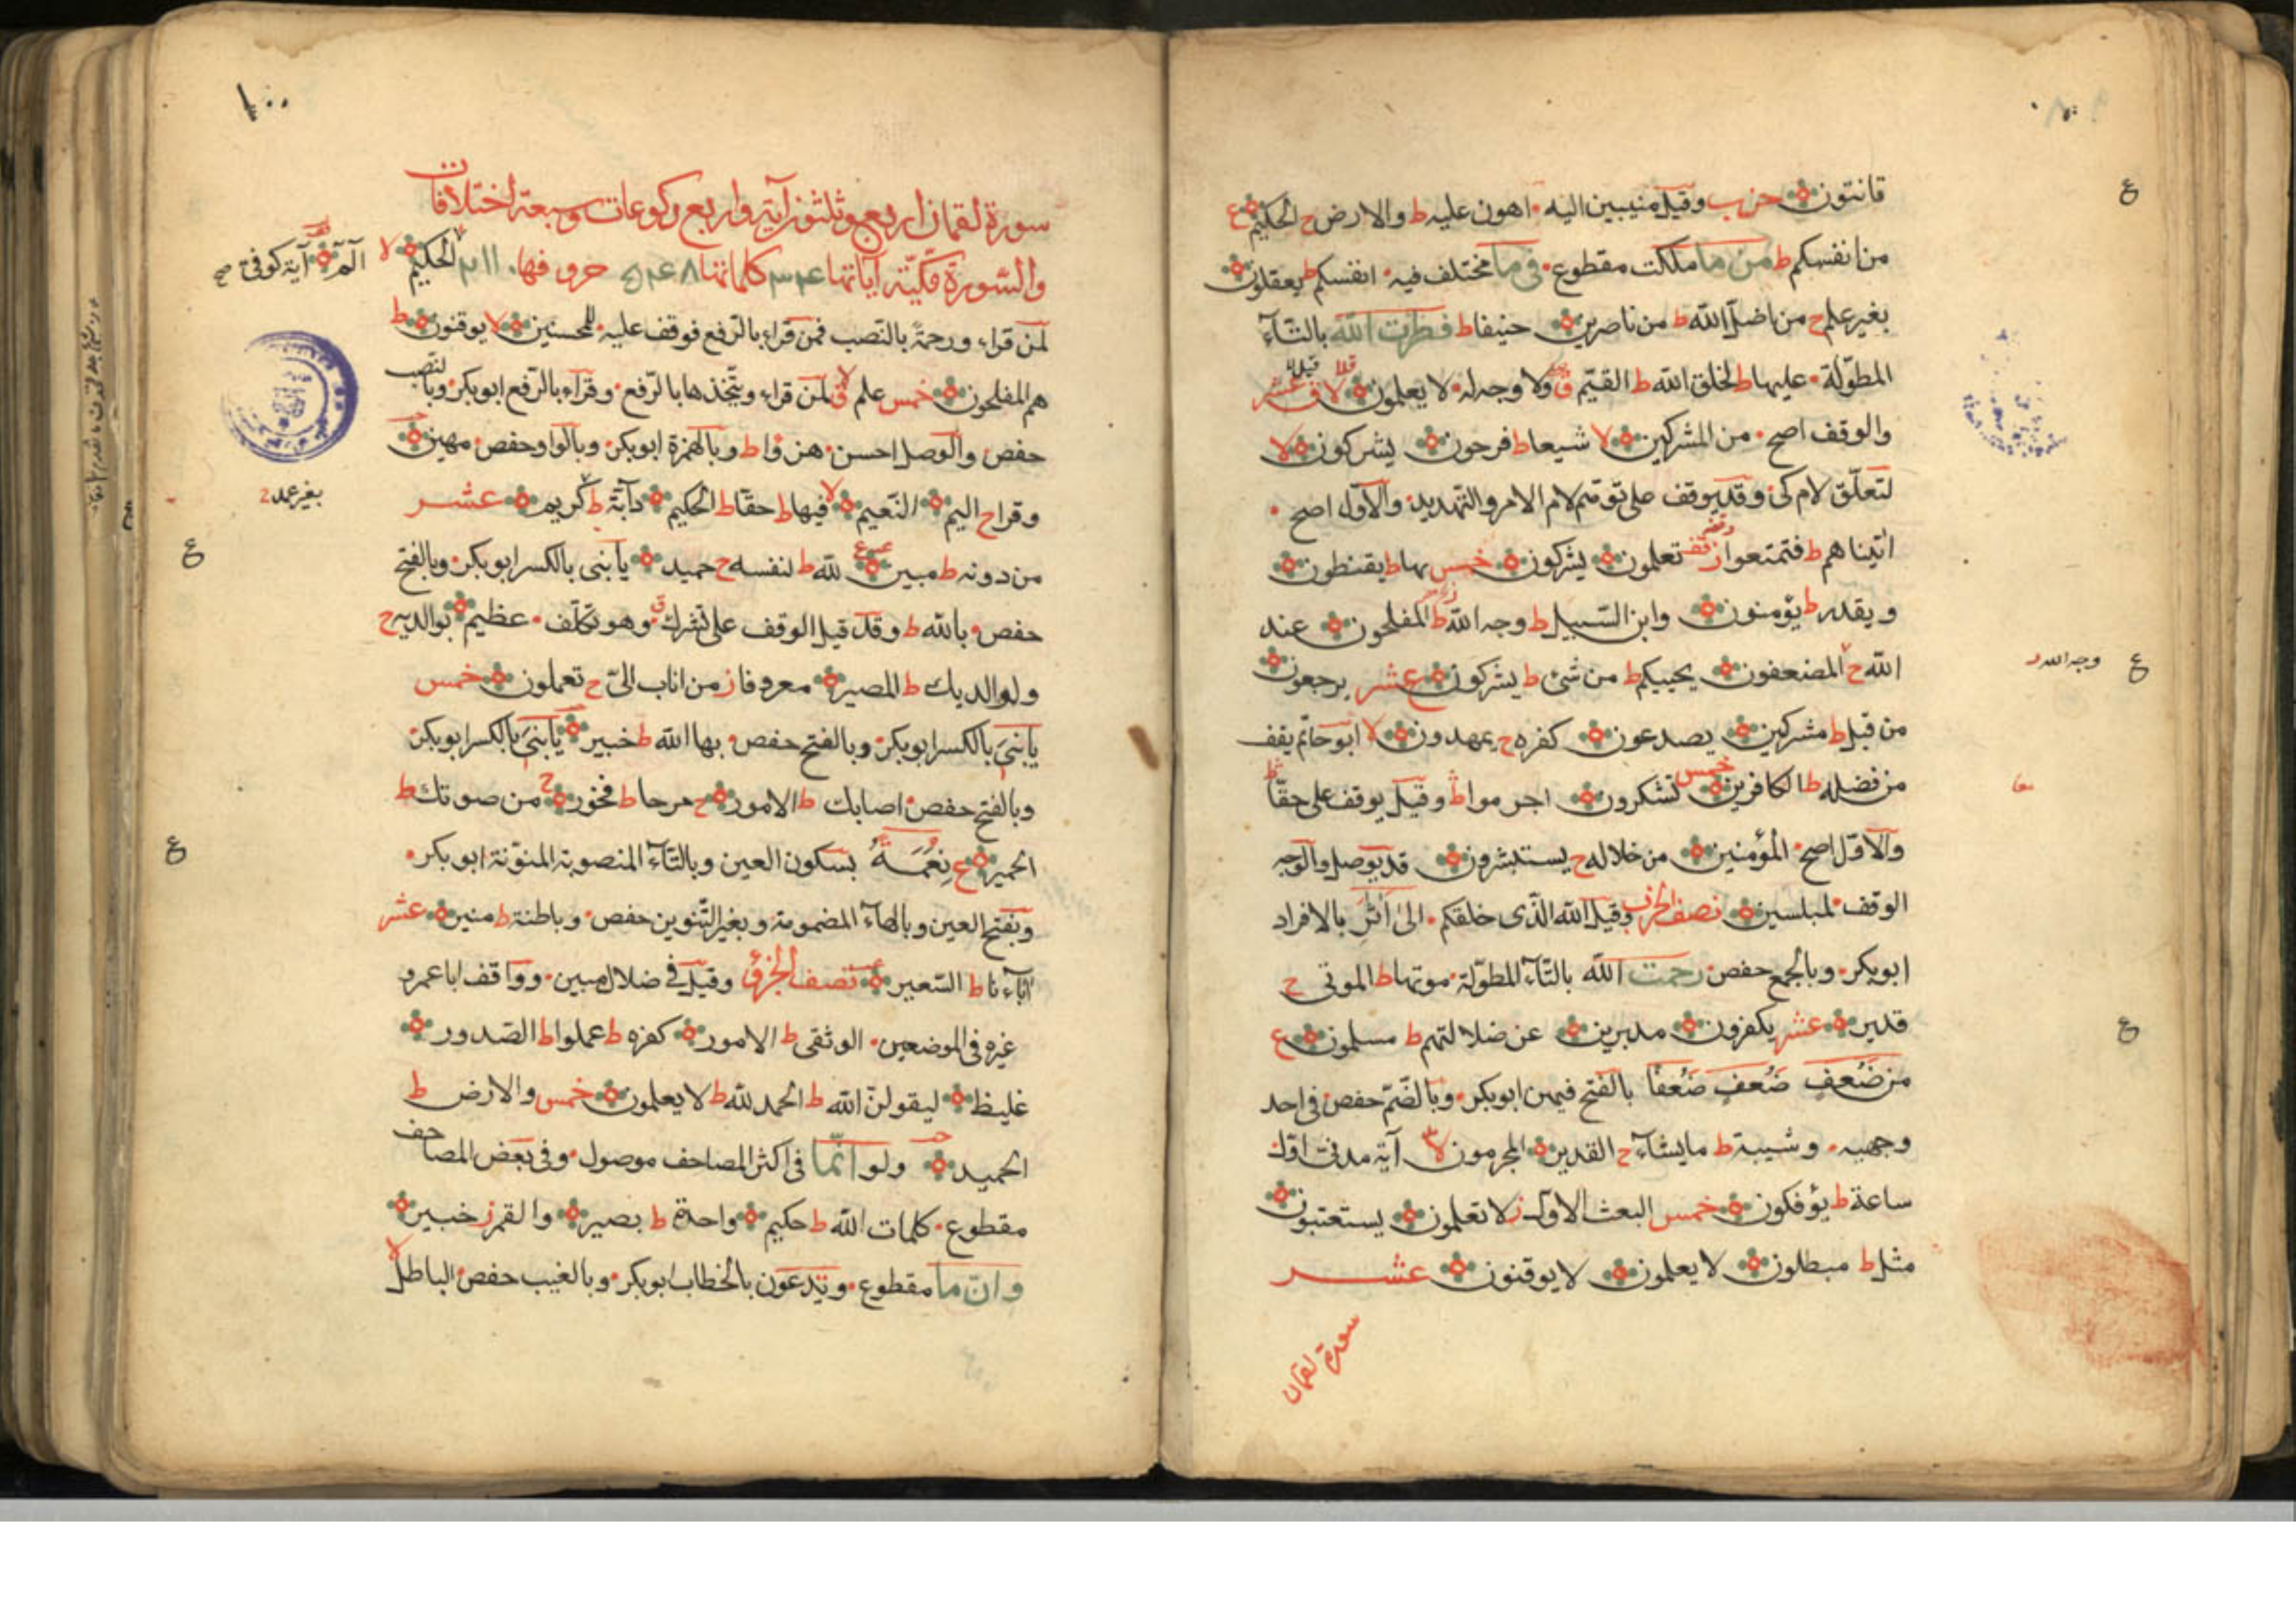 قانتون حزب وقيل منيبين اليه اهون عليه ط والارض ح الحكيم ع
من انفسكم ط من ما ملكت مقطوع في ما مختلف فيه انفسكم ط يعقلون
بغير علم ح من اضل الله ط من ناصرين حنيفا ط فطرت الله بالتآء
المطولة عليها ط لخلق الله ط القيم ق ولا وجه له لا يعلمون لا ق عشر
والوقف اصح من المشركين لا شيعا ط فرحون يشركون لا
لتعلق لام كى وقد يوقف على توهم لام الامر والتهديد والاول اصح
اتيناهم ط فتمتعوا ز قف تعلمون يشركون خمس بها ط يقنطون
ويقدر ط يؤمنون وابن السبيل ط وجه الله ط المفلحون عند
الله ح المضعفون يحييكم ط من شئ ط يشركون عشر يرجعون
من قبل ط مشركين يصدعون كفره ح يمهدون لا ابو حاتم يقف
من فضله ط الكافرين خمس تشكرون اجرموا ط وقيل يوقف على حقا ط
والاول اصح المؤمنين من خلاله ح يستبشرون قد يوصل والوجه
الوقف لمبلسين نصف الحزب وقيل الله الذى خلقكم الى اثر بالافراد
ابو بكر وبالجمع حفص رحمت الله بالتآء المطولة موتها ط الموتى ح
قدير عشر يكفرون مدبرين عن ضلالتهم ط مسلمون ع
من ضعف ضعف ضعفا بالفتح فيهن ابو بكر وبالضم حفص في احد
وجهيه وشيبة ط ما يشآء ح القدير المجرمون لا آية مدنى اول
ساعة ط يؤفكون خمس البعث الاول ز لا تعلمون يستعتبون
مثل ط مبطلون لا يعلمون لا يوقنون عشر
سورة لقمان
ع
ع وجه الله
ع
١٠٠
سورة لقمان اربع وثلثون آية واربع ركوعات وسبعة اختلافات
والسورة مكية آياتها ٣٤ كلماتها ٥٤٨ حروفها ٢١١٠ الحكيم لا
الم آية كوفى صح
لمن قراء ورحمة بالنصب فمن قراء بالرفع فوقف عليه للمحسنين لا يوقنون ط
هم المفلحون خمس علم ق لا لمن قراء ويتخذها بالرفع وقراء بالرفع ابو بكر وبالنصب
حفص والوصل احسن هزوا ط وبالهمزة ابو بكر وبالواو حفص مهين
وقرا ح اليم النعيم لا فيها ط حقا ط الحكيم دآبة ط كريم عشر
بغير عمد
من دونه ط مبين ع لله ط لنفسه ح حميد يابنى بالكسر ابو بكر وبالفتح
حفص بالله ط وقد قيل الوقف على تشرك ق وهو تكلف عظيم بوالديه ح
ولوالديك ط المصير معروفا ز من اناب الى ح تعملون خمس
يابنى بالكسر ابو بكر وبالفتح حفص بها الله ط خبير يابنى بالكسر ابو بكر
وبالفتح حفص اصابك ط الامور ح مرحا ط فخور ح من صوتك ط
الحمير ع نعمة بسكون العين وبالتآء المنصوبة المنونة ابو بكر
وبفتح العين وبالهآء المضمومة وبغير التنوين حفص وباطنة ط منير عشر
آبآءنا ط السعير نصف الجزؤ وقيل في ضلال مبين وواقف ابا عمرو
غيره في الموضعين الوثقى ط الامور كفره ط عملوا ط الصدور
غليظ ليقولن الله ط الحمد لله ط لا يعلمون خمس والارض ط
الحميد ولو انما في اكثر المصاحف موصول وفي بعض المصاحف
مقطوع كلمات الله ط حكيم واحدة ط بصير والقمر ز خبير
وان ما مقطوع وتدعون بالخطاب ابو بكر وبالغيب حفص الباطل لا
ع
ع